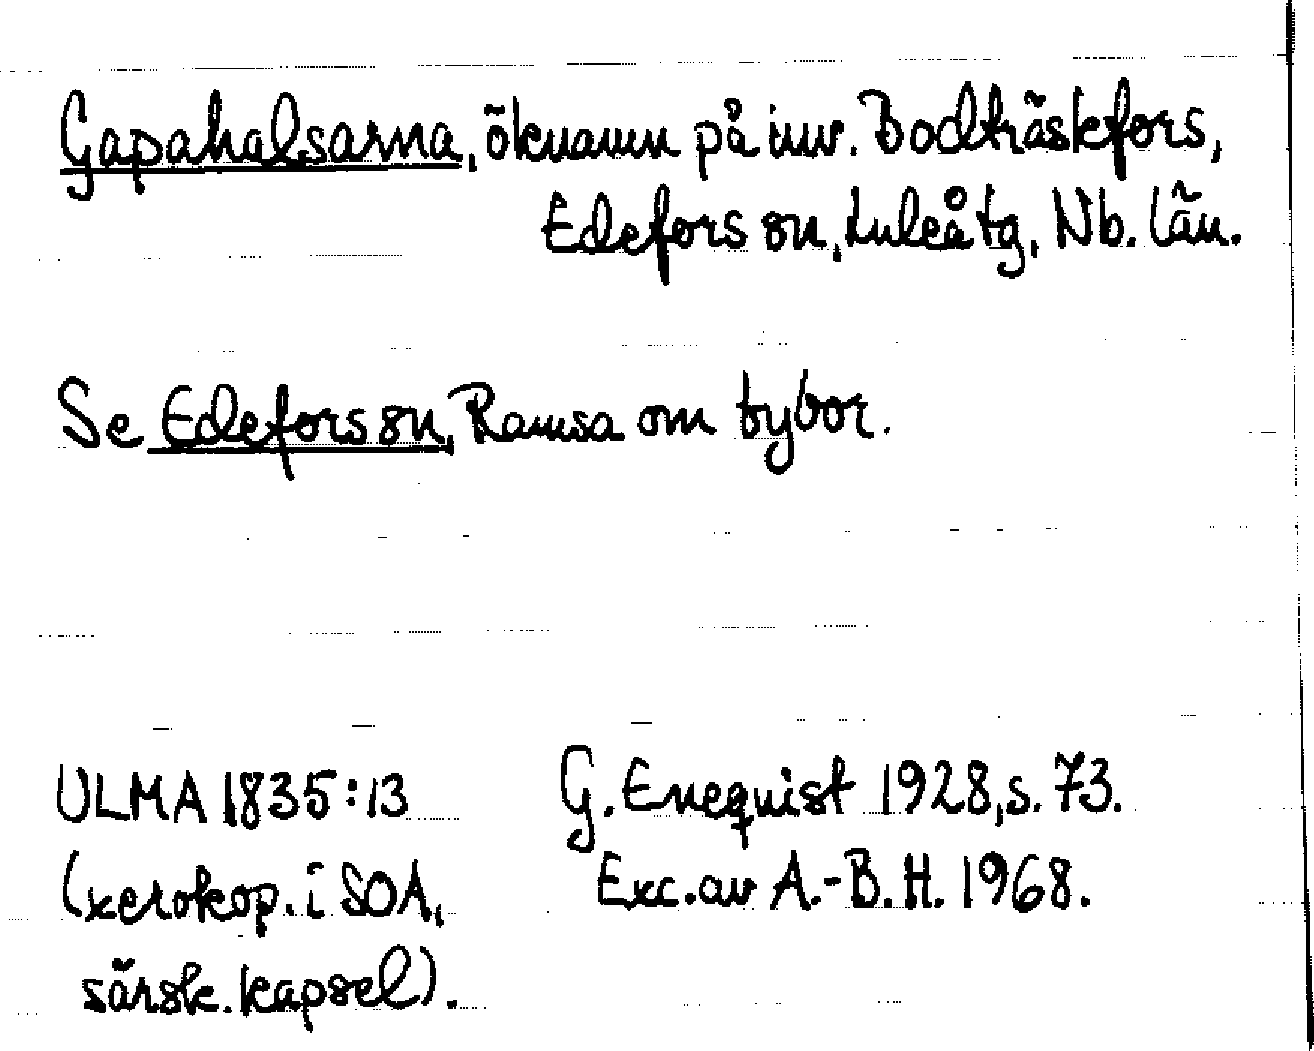 Gapahalsarna, öknamn på inv. Bodträskfors,
Edefors sn, Luleå tg, Nb. län.
Se Edefors sn, Ramsa om bybor.
ULMA 1835:13
(xerokop. i SOA,
särsk. kapsel).
G. Enequist 1928, s. 73.
Exc. av A.-B. H. 1968.